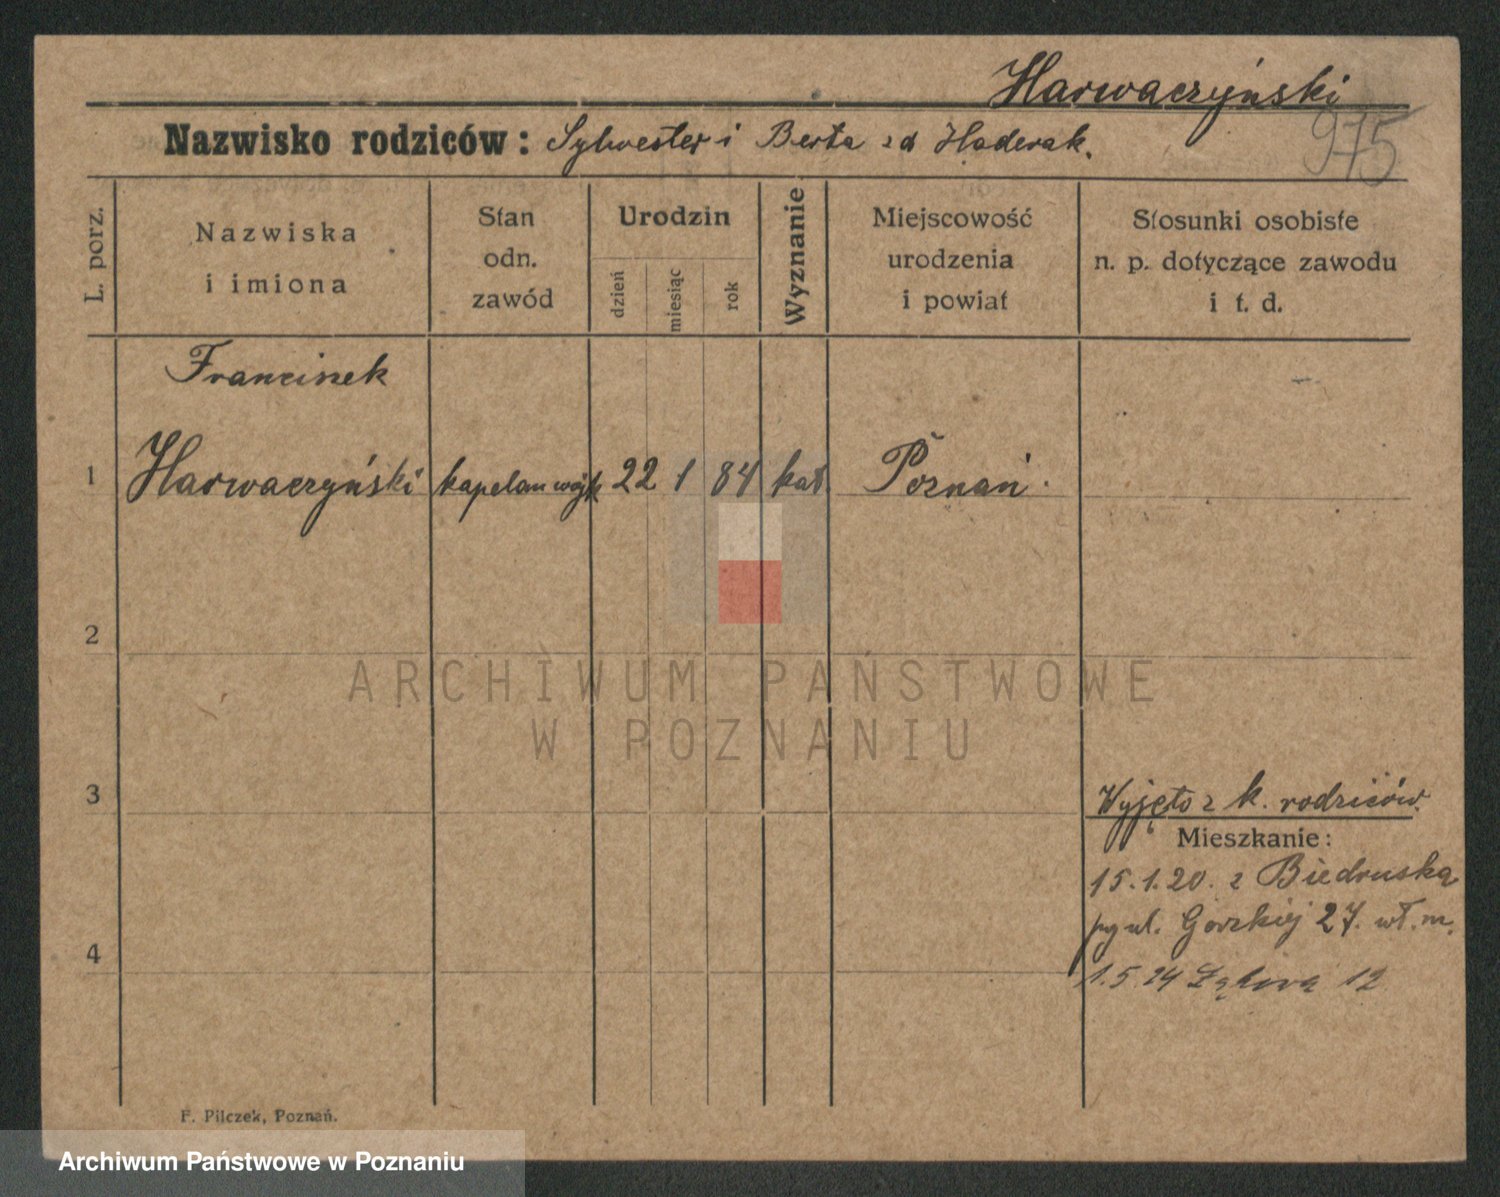 Harwaczyński
975
Nazwisko rodziców: Sylwester i Berta zd Haderak.
L. porz.
Nazwiska
i imiona
Stan
odn.
zawód
Urodzin
dzień
miesiąc
rok
Wyznanie
Miejscowość
urodzenia
i powiat
Stosunki osobiste
n. p. dotyczące zawodu
i t. d.
Franciszek
1 Harwaczyński kapelan wojsk 22 1 84 kat. Poznań.
2
ARCHIWUM PAŃSTWOWE
W POZNANIU
3
Wyjęto z k. rodziców.
Mieszkanie:
15.1.20. z Biedruska
4
ul. Gorzkiej 27. wł. m.
1.5.24 Łąkowa 12
F. Pilczek, Poznań.
Archiwum Państwowe w Poznaniu